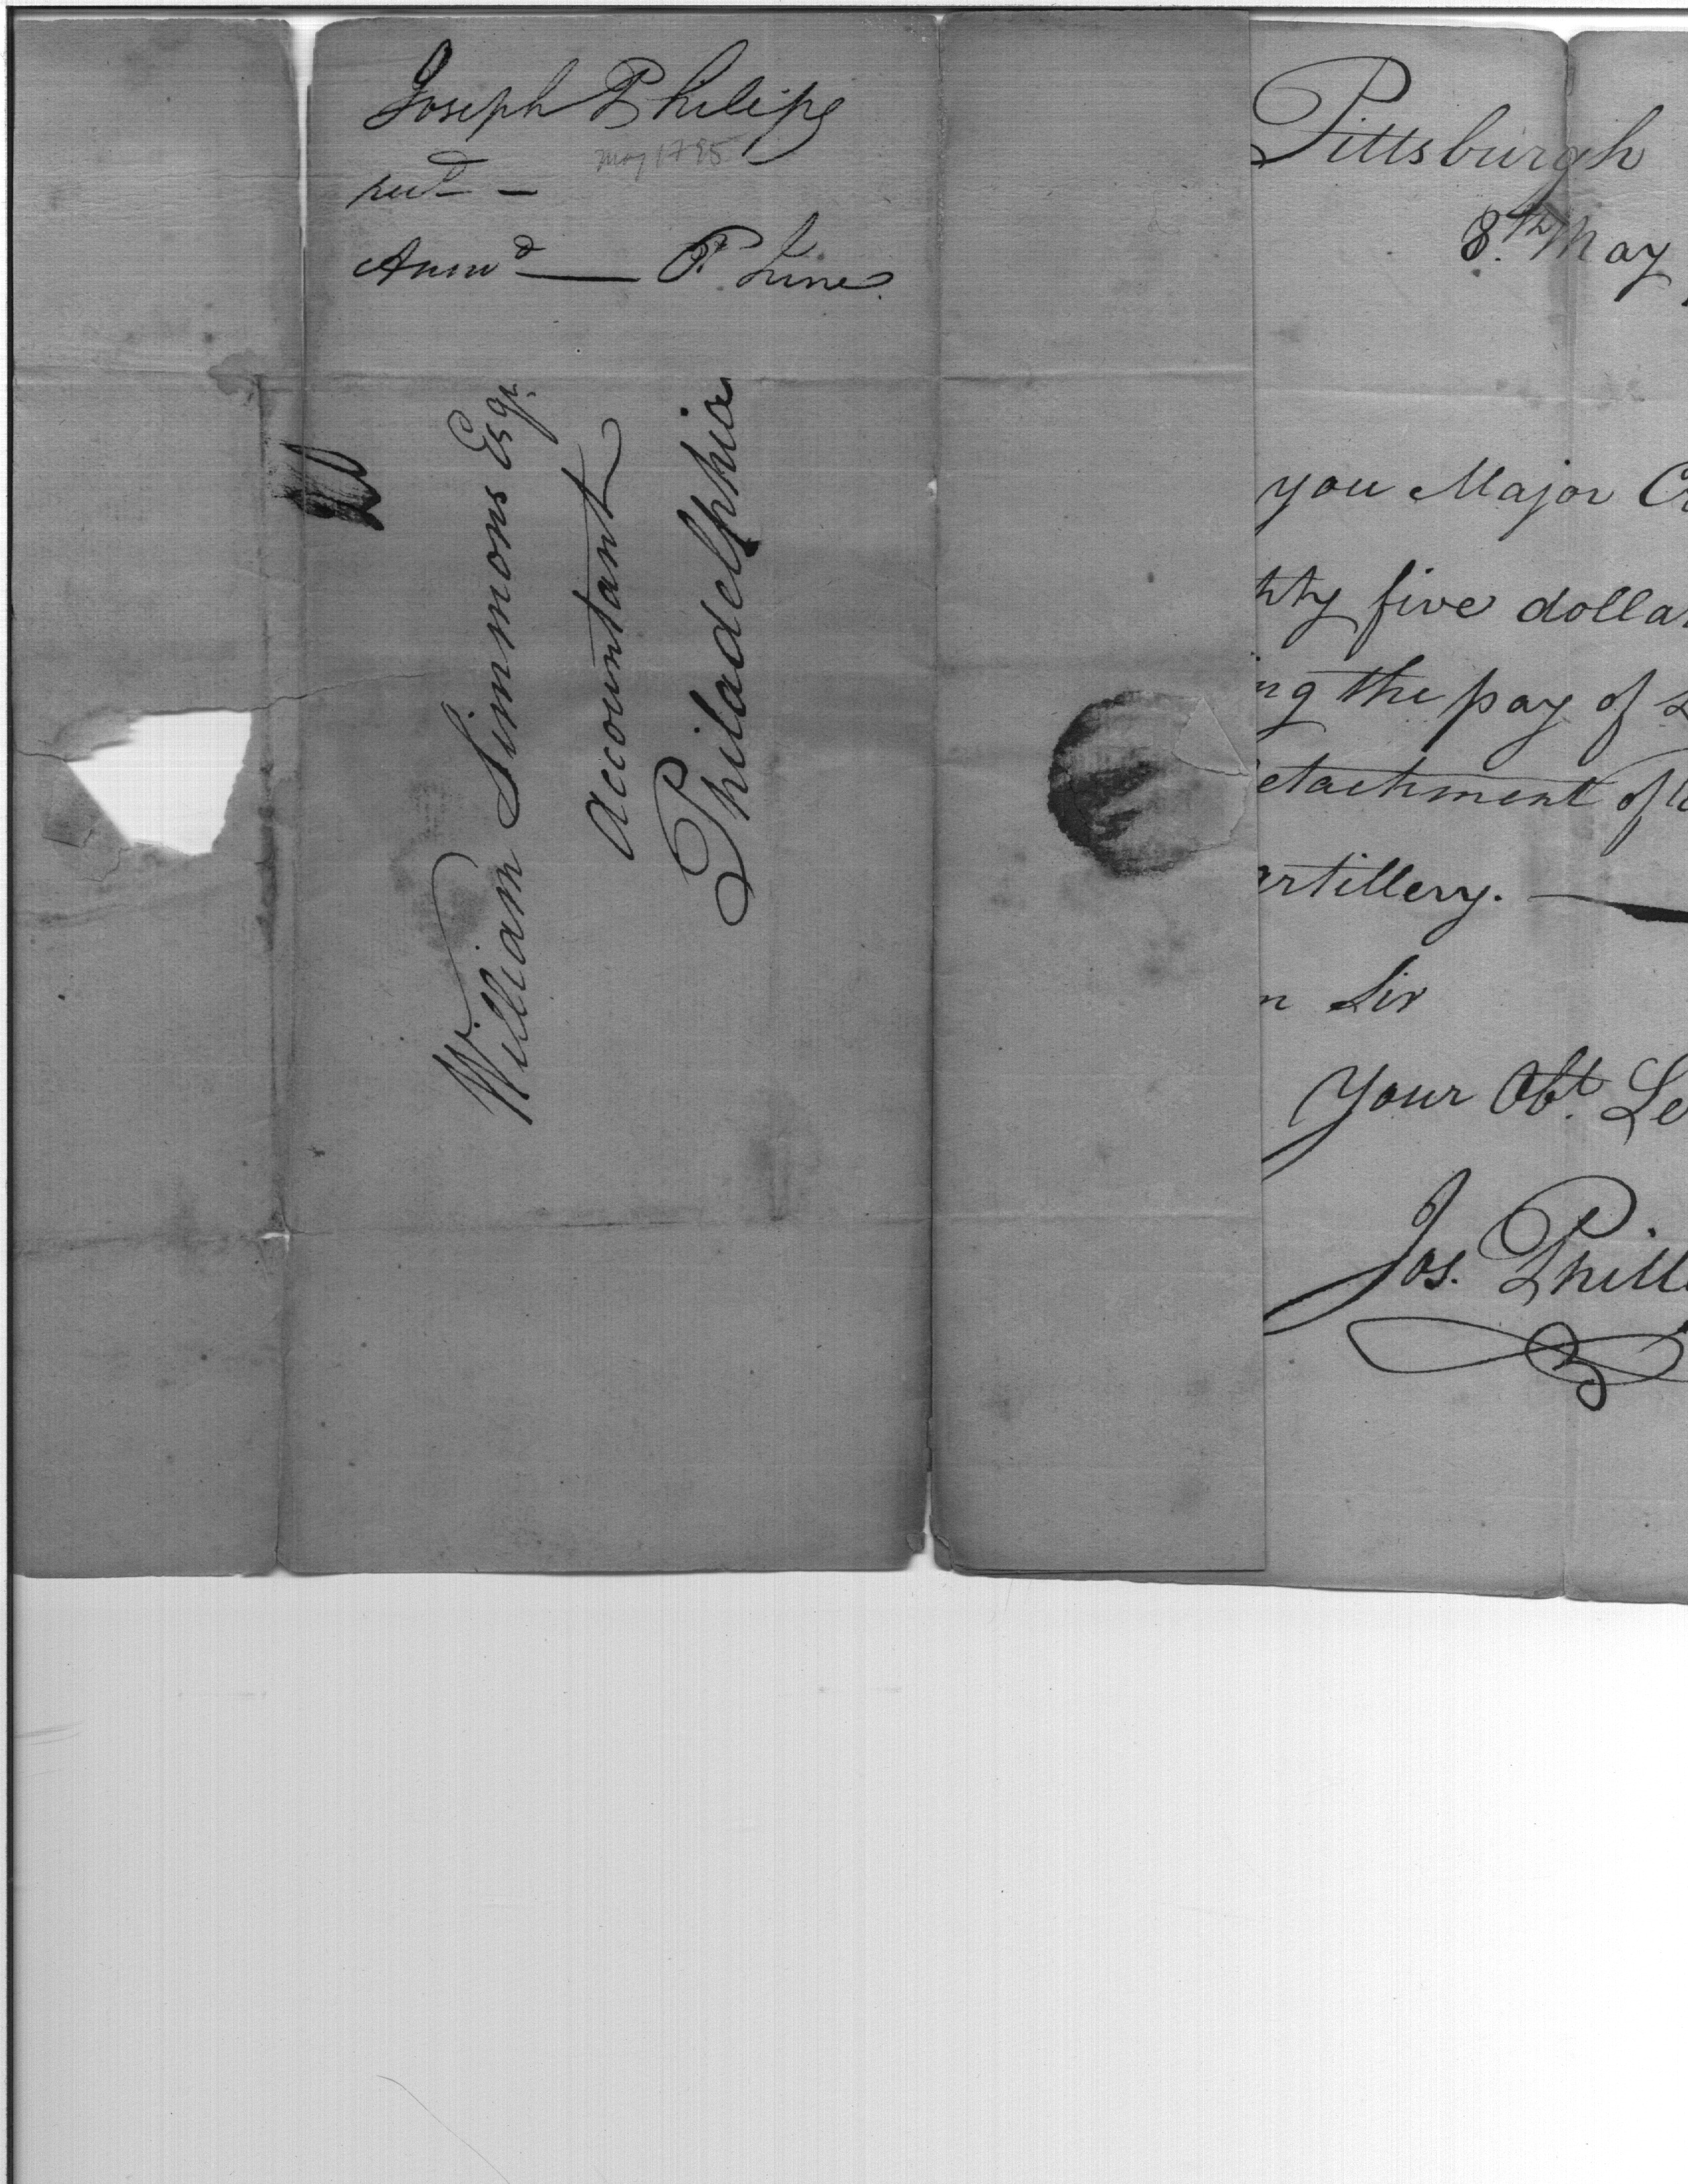 Joseph Philips
May 1795
recd —
Answd — P. Line
William Simmons Esqr.
Accountant
Philadelphia
Pittsburgh
8.th May
you Major Cr
hty five dollar
ng the pay of
etachment of
artillery. —
m Sir
Your Obt. Se
Jos. Philli